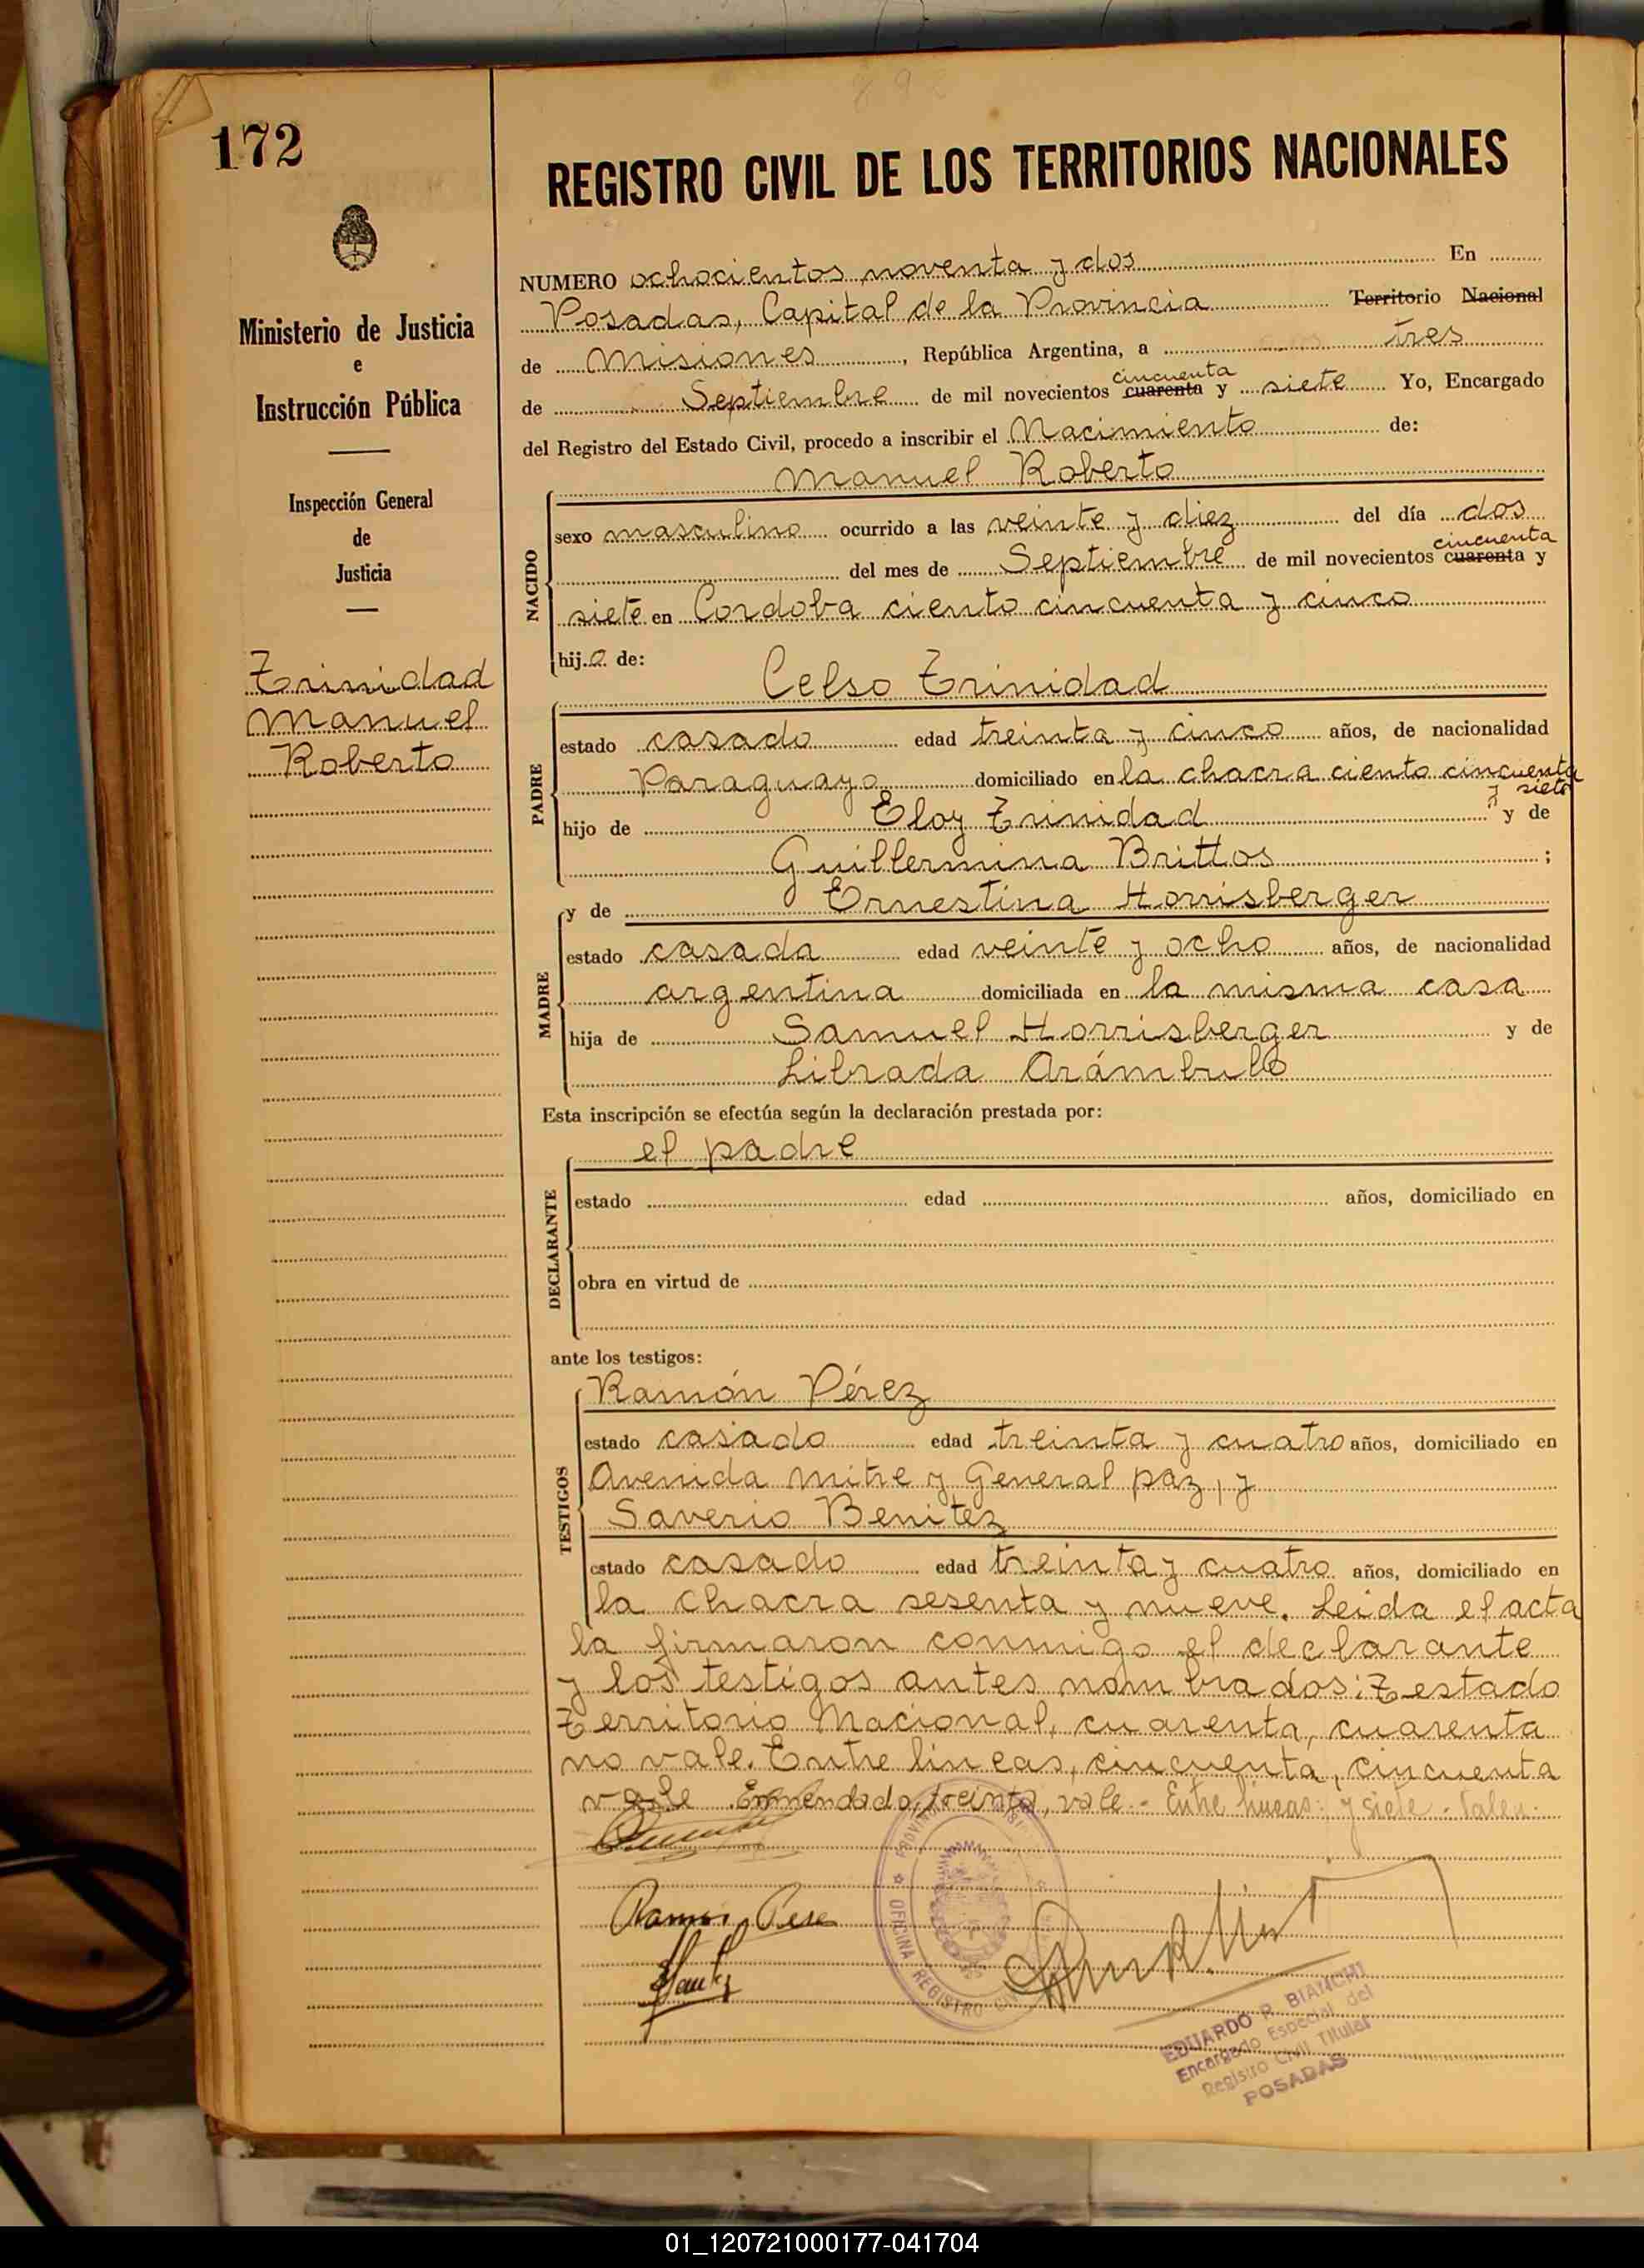 892
172
REGISTRO CIVIL DE LOS TERRITORIOS NACIONALES
Ministerio de Justicia
e
Instrucción Pública
Inspección General
de
Justicia
Trinidad
Manuel
Roberto
NUMERO ochocientos noventa y dos En
Posadas, Capital de la Provincia Territorio Nacional
de Misiones, República Argentina, a tres
cincuenta
de Septiembre de mil novecientos cuarenta y siete Yo, Encargado
del Registro del Estado Civil, procedo a inscribir el Nacimiento de:
Manuel Roberto
NACIDO
sexo masculino ocurrido a las veinte y diez del día dos
cincuenta
del mes de Septiembre de mil novecientos cuarenta y
siete en Cordoba ciento cincuenta y cinco
hijo de:
Celso Trinidad
PADRE
estado casado edad treinta y cinco años, de nacionalidad
Paraguaya domiciliado en la chacra ciento cincuenta
y siete
hijo de Eloy Trinidad y de
Guillermina Brittos ;
y de Ernestina Horrisberger
MADRE
estado casada edad veinte y ocho años, de nacionalidad
argentina domiciliada en la misma casa
hija de Samuel Horrisberger y de
Librada Arámbulo
Esta inscripción se efectúa según la declaración prestada por:
el padre
DECLARANTE
estado edad años, domiciliado en
obra en virtud de
ante los testigos:
Ramón Pérez
TESTIGOS
estado casado edad treinta y cuatro años, domiciliado en
Avenida Mitre y General paz, y
Saverio Benitez
estado casado edad treinta y cuatro años, domiciliado en
la chacra sesenta y nueve. Leida el acta
la firmaron conmigo el declarante
y los testigos antes nombrados: Testado
Territorio Nacional, cuarenta, cuarenta
no vale. Entre lineas, cincuenta, cincuenta
vale Enmendado, treinta, vale.- Entre lineas: y siete. Valen.
OFICINA REGISTRO
EDUARDO R. BIANCHI
Encargado Especial del
Registro Civil Titular
POSADAS
01_120721000177-041704